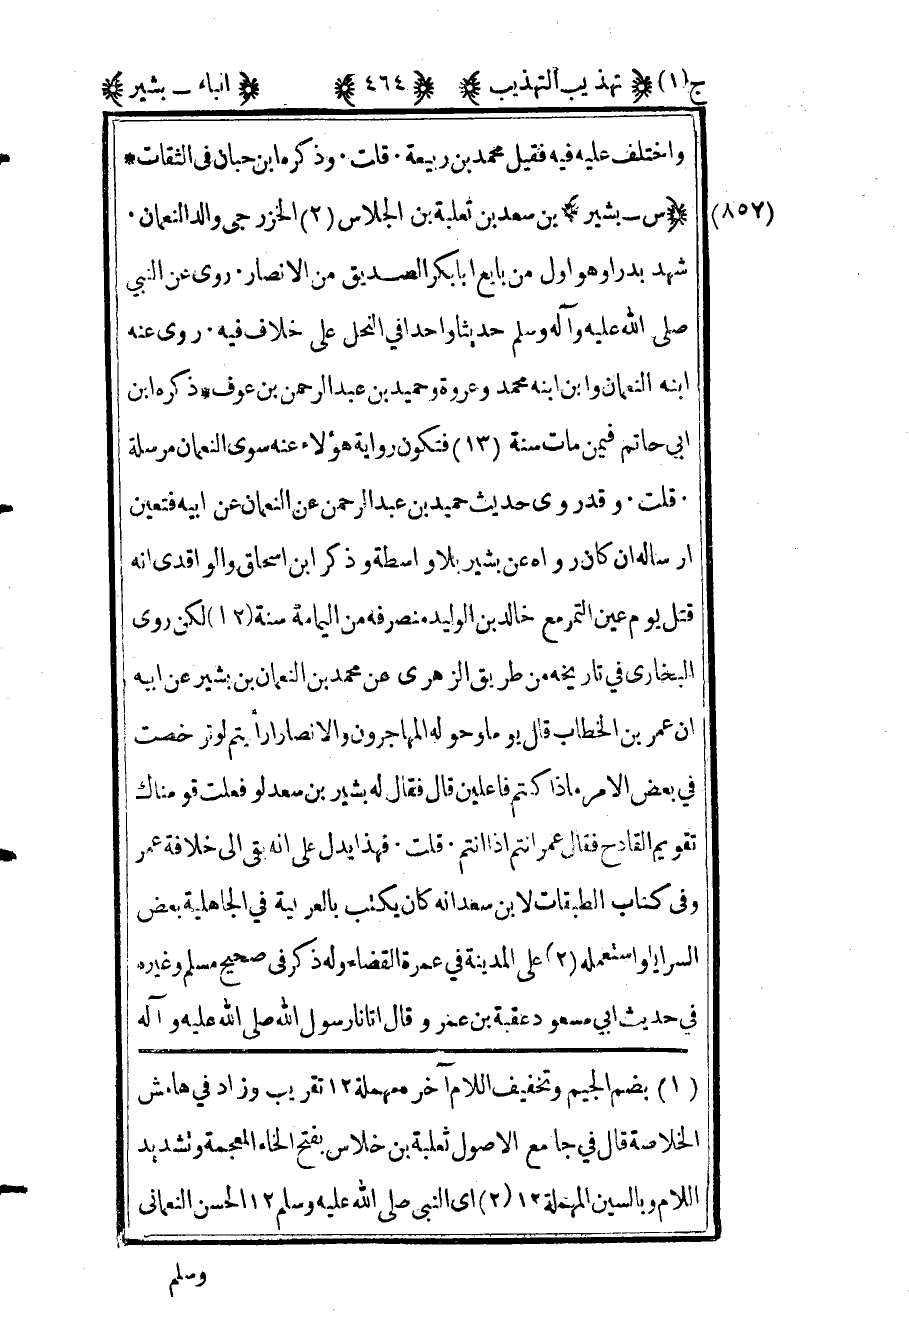 ج(١) ﴿ تهذيب التهذيب ﴾ ﴿ ٤٦٤ ﴾ ﴿ انباء ـ بشير ﴾
واختلف عليه فيه فقيل محمد بن ربيعة · قلت · وذكره ابن حبان فى الثقات *
(٨٥٧) ﴿ س ـ بشير ﴾ بن سعد بن ثعلبة بن الجلاس (٢) الخزرجى والد النعمان ·
شهد بدرا وهو اول من بايع ابابكر الصديق من الانصار · روى عن النبي
صلى الله عليه وآله وسلم حديثا واحدا في النحل على خلاف فيه · روى عنه
ابنه النعمان وابن ابنه محمد وعروة وحميد بن عبد الرحمن بن عوف * ذكره ابن
ابي حاتم فيمن مات سنة (١٣) فتكون رواية هؤلاء عنه سوى النعمان مرسلة
· قلت · وقد روى حديث حميد بن عبد الرحمن عن النعمان عن ابيه فتعين
ارساله ان كان رواه عن بشير بلا واسطة وذكر ابن اسحاق والواقدى انه
قتل يوم عين التمر مع خالد بن الوليد منصرفه من اليمامة سنة (١٢) لكن روى
البخارى في تاريخه من طريق الزهرى عن محمد بن النعمان بن بشير عن ابيه
ان عمر بن الخطاب قال يوما وحوله المهاجرون والانصار ارأيتم لو ترخصت
في بعض الامر ماذا كنتم فاعلين قال فقال له بشير بن سعد لو فعلت قومناك
تقويم القادح فقال عمر انتم اذا انتم · قلت · فهذا يدل على انه بقى الى خلافة عمر
وفى كتاب الطبقات لابن سعد انه كان يكتب بالعربية في الجاهلية بعض
السرايا واستعمله (٢) على المدينة في عمرة القضاء وله ذكر فى صحيح مسلم وغيره
في حديث ابي مسعود عقبة بن عمرو قال اتانا رسول الله صلى الله عليه وآله
(١) بضم الجيم وتخفيف اللام آخره مهملة ١٢ تقريب وزاد في هامش
الخلاصة قال في جامع الاصول ثعلبة بن خلاس بفتح الخاء المعجمة وتشديد
اللام وبالسين المهملة ١٢ (٢) اى النبى صلى الله عليه وسلم ١٢ الحسن النعمانى
وسلم